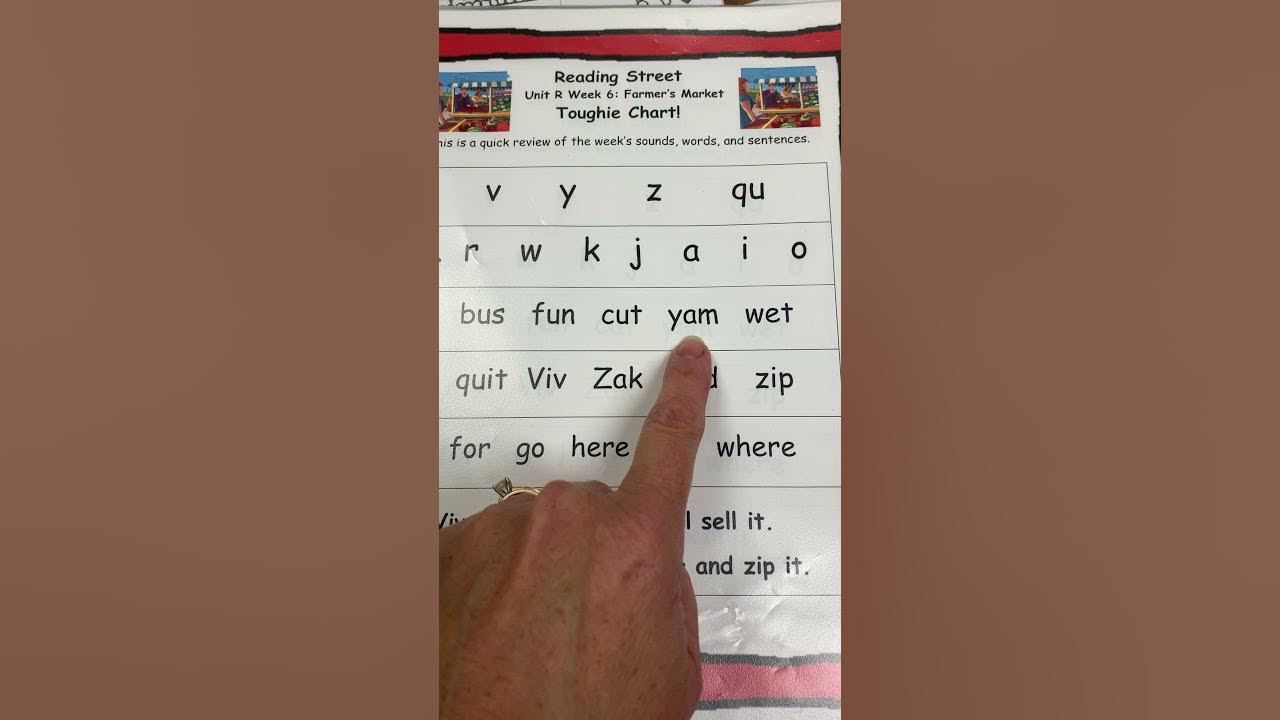 Reading Street
Unit R Week 6: Farmer's Market
Toughie Chart!
is a quick review of the week's sounds, words, and sentences.
v y z qu
r w k j a i o
bus fun cut yam wet
quit Viv Zak zip
for go here where
sell it.
and zip it.